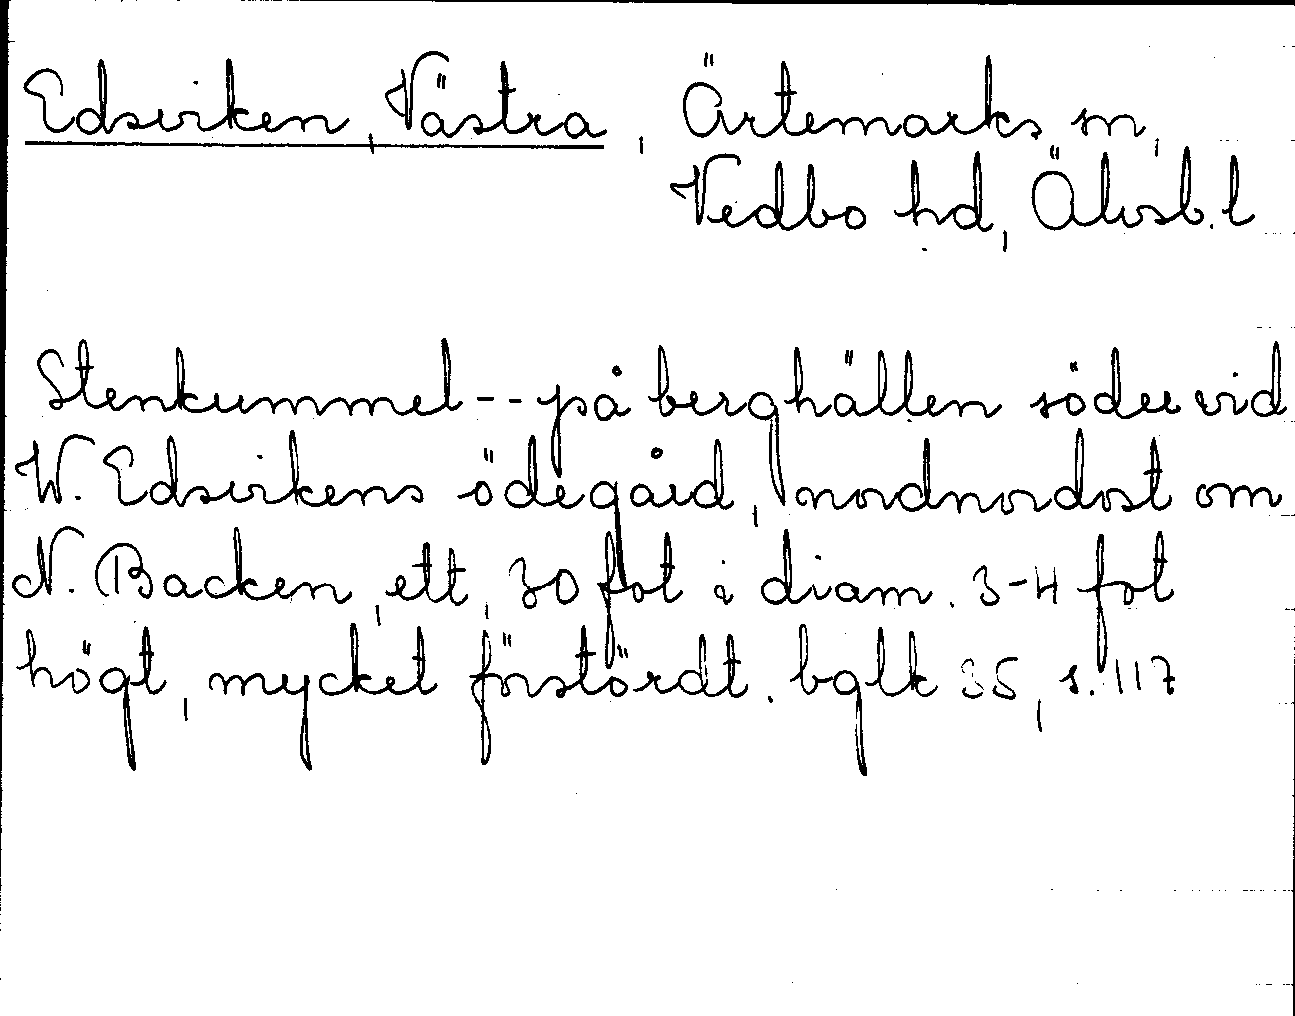 Edsviken, Västra, Ärtemarks sn,
Vedbo hd, Älvsb. l
Stenkummel -- på berghällen söder vid
W. Edsvikens ödegård, nordnordost om
N. Backen, ett, 30 fot i diam. 3-4 fot
högt, mycket förstördt. bglk 35, s. 117